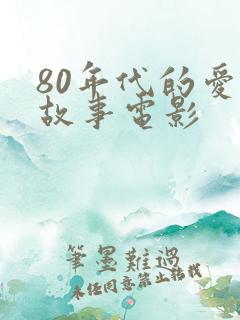 80年代的爱
故事电影
筆墨難過
未经同意禁止转载